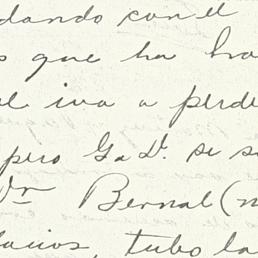 dando con el
que ha
iva a perde
pero G a D. se s
Dn Bernal (
tubo la